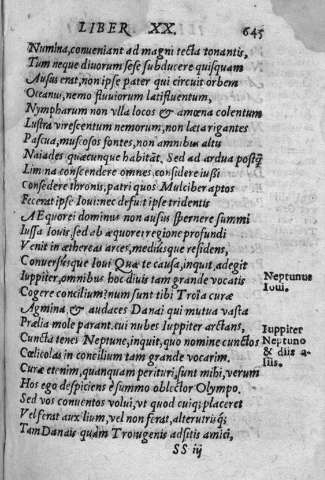 LIBER XX. 645
Numina, conueniant ad magni tecta tonantis,
Tum neque diuorum sese subducere quisquam
Ausus erat, non ipse pater qui circuit orbem
Oceanus, nemo fluuiorum latifluentum,
Nympharum non vlla locos & amœna colentum
Lustra virescentum nemorum, non læta rigantes
Pascua, muscosos fontes, non amnibus altu
Naiades quæcunque habitāt. Sed ad ardua postq̃
Limina conscendere omnes, considere iussi
Consedere thronis, patri quos Mulciber aptos
Fecerat ipse Ioui: nec defuit ipse tridentis
Æquorei dominus non ausus spernere summi
Iussa Iouis, sed ab æquorei regione profundi
Venit in æthereas arces, mediúsque residens,
Conuersúsque Ioui Quæ te causa, inquit, adegit
Iuppiter, omnibus hoc diuis tam grande vocatis
Neptunus
Ioui.
Cogere concilium? num sunt tibi Troïa curæ
Agmina, & audaces Danai qui mutua vasta
Prælia mole parant. cui nubes Iuppiter arctans,
Iuppiter
Neptuno
& diis a-
liis.
Cuncta tenes Neptune, inquit, quo nomine cunctos
Cœlicolas in concilium tam grande vocarim.
Curæ etenim, quanquam perituri, sunt mihi, verum
Hos ego despiciens è summo oblector Olympo.
Sed vos conuentos volui, vt quod cuiq; placeret
Vel ferat auxilium, vel non ferat, alterutrisq́;
Tam Danais quàm Troiugenis adsitis amici,
SS iij